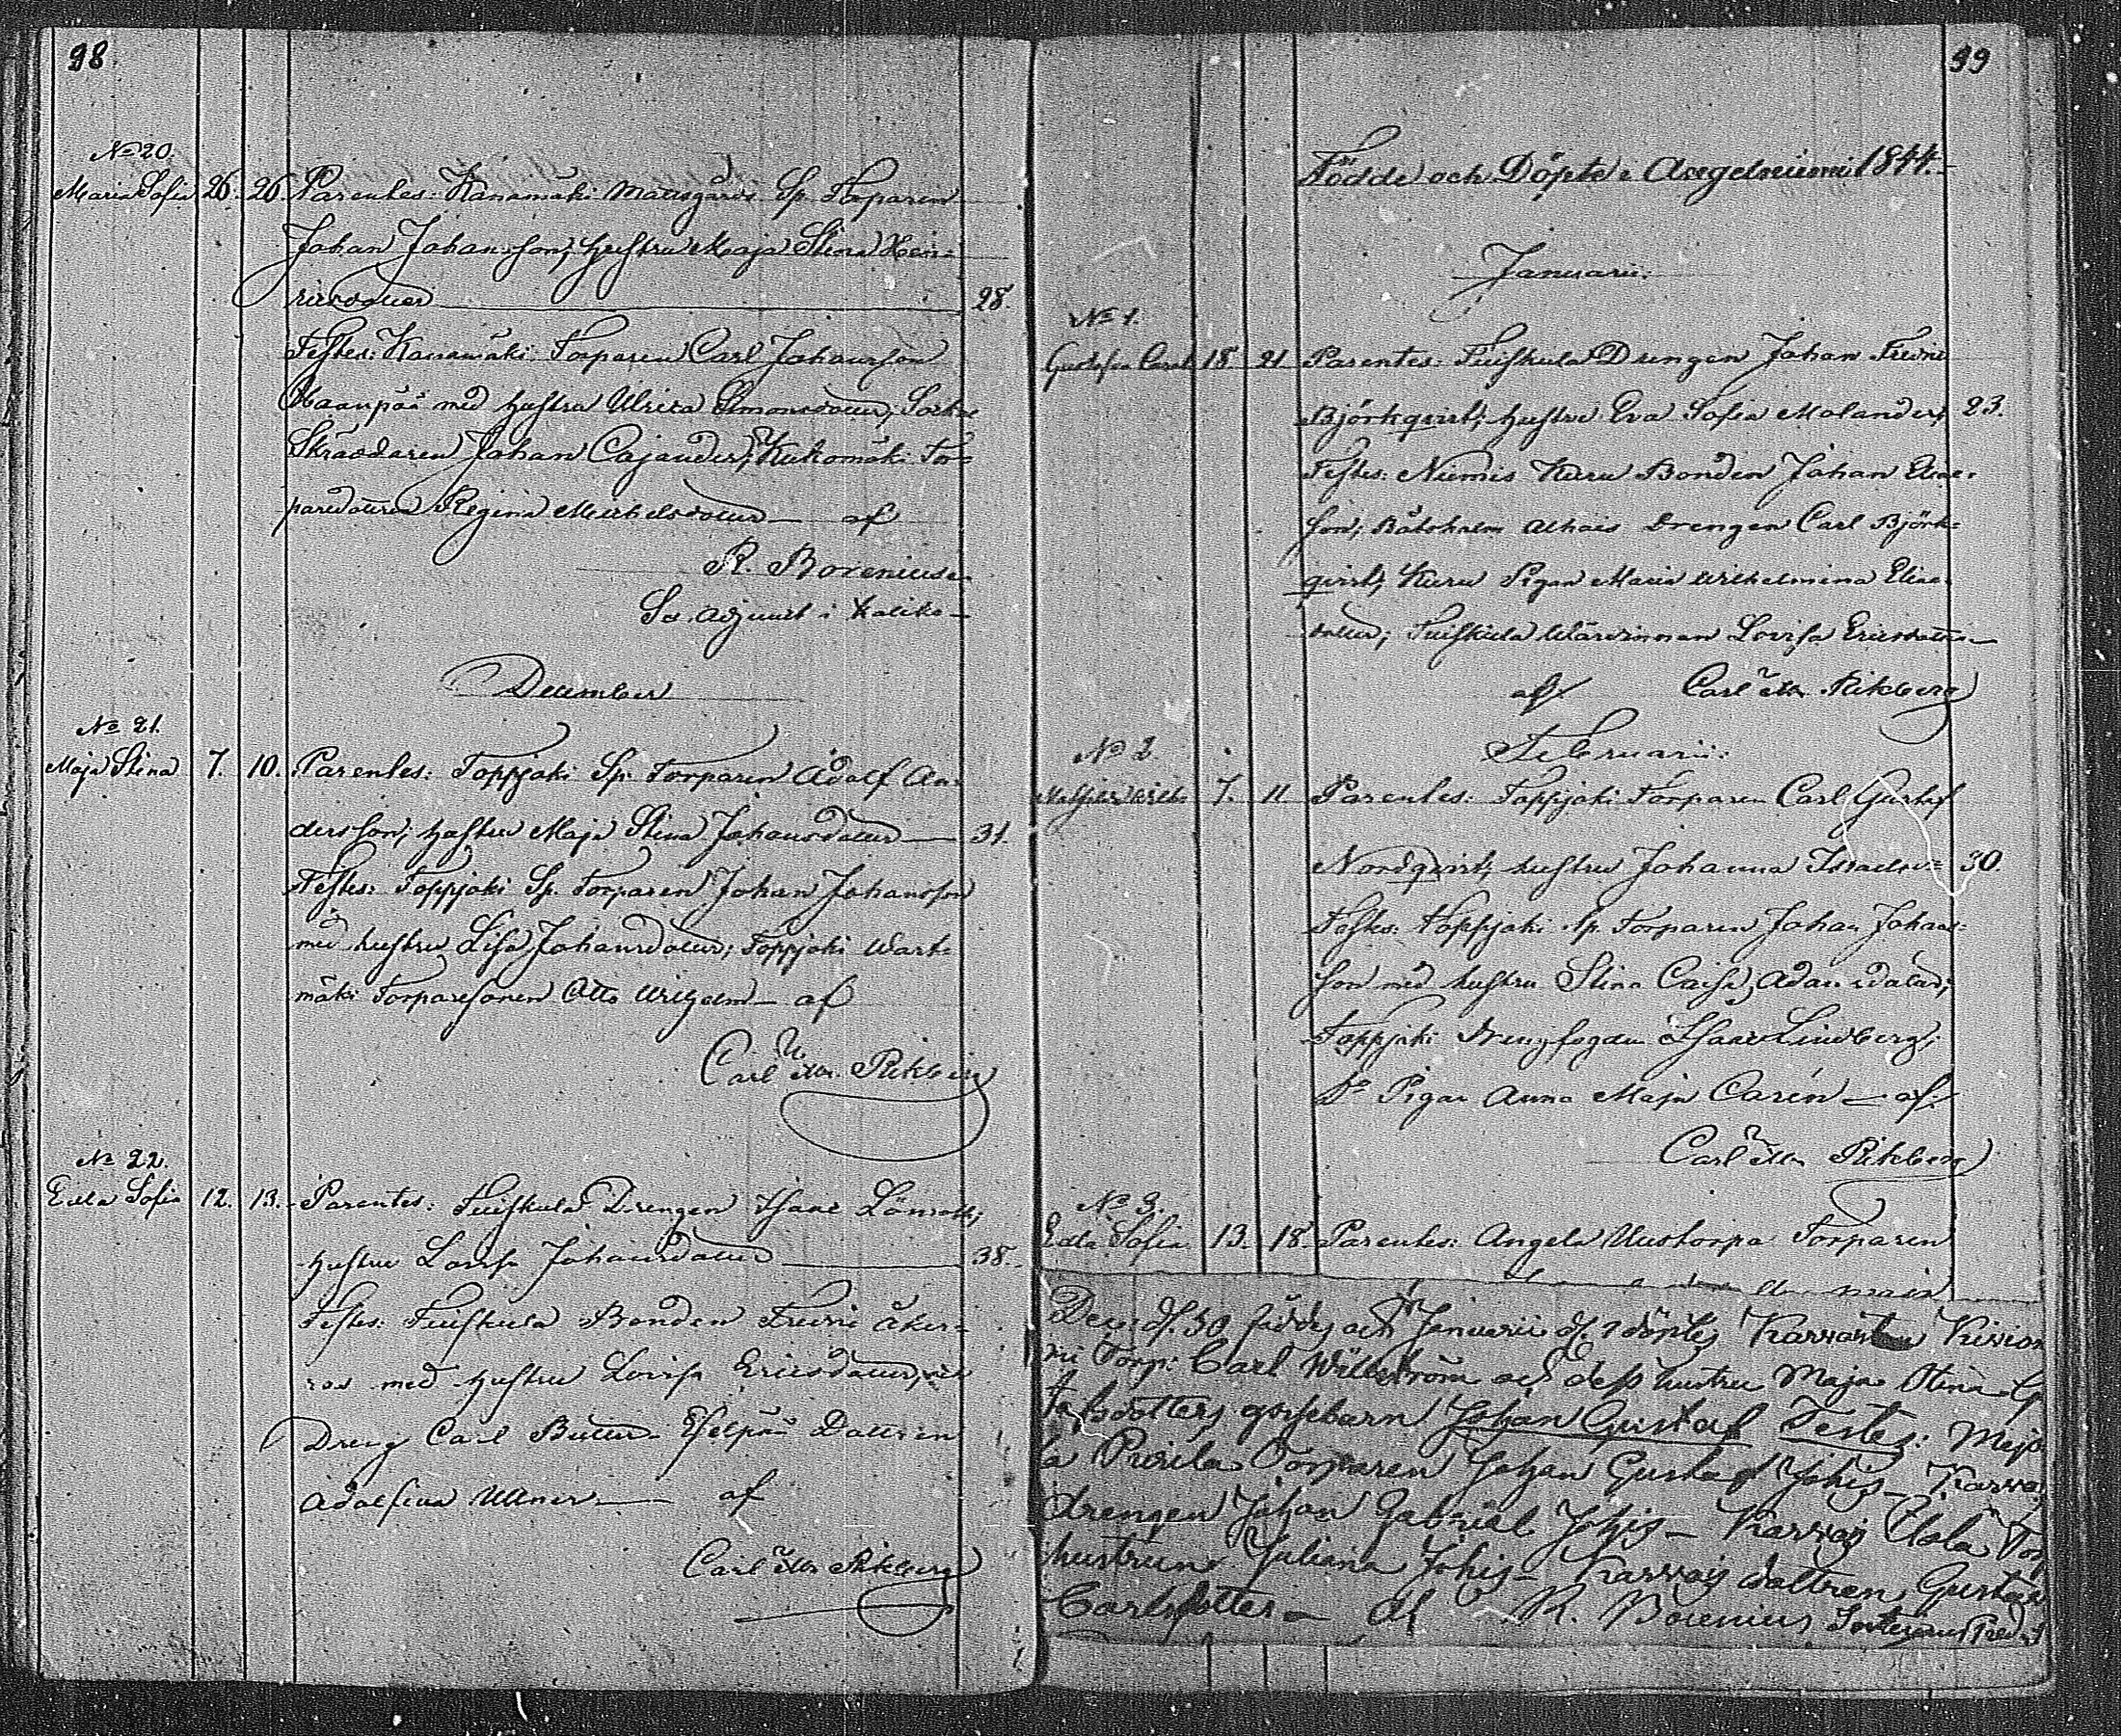 98
No 20.
Maria Sofia 26. 26. Parentes: Kanamäki Mattsgårds Sp. Torparen
Johan Johansson, hustru Maja Stina Hein=
ricsdotter 28.
Testes: Kanamäki Torparen Carl Johansson
Haanpää med hustru Ulrica Simonsdotter, Sock:
Skräddaren Johan Cajander, Kukomäki Tor=
paredottren Regina Michelsdotter — af
R. Borenius
Sv. Adjunct i Haliko —
December
No 21.
Maja Stina 7. 10. Parentes: Toppjoki Sp. Torparen Adolf An=
dersson, hustru Maja Stina Johansdotter — 31.
Testes: Toppjoki Sp. Torparen Johan Johansson
med hustru Lisa Johansdotter; Toppjoki Wart=
mäki Torparesonen Otto Wilhelm — af
Carl M. Rikberg
No 22.
Edla Sofia 12. 13. Parentes: Tuiskula Drengen Isaac Lönroth,
hustru Lovisa Johansdotter 38.
Testes: Tuiskula Bonden Fredric Åker=
ros med hustru Lovisa Ericsdotter,
Dreng Carl Esselpää Dottren
Adolfina Ullner — af
Carl M. Rikberg
99
Födde och Döpte i Angelniemi 1844.
Januarii.
No 1.
Gustafva Carol. 18 21 Parentes: Tuiskula Drengen Johan Fredric
Björkqvist, hustru Eva Sofia Molander, 23.
Testes: Niemis Kuru Bonden Johan Elias=
son, Båtsholm Drengen Carl Björk=
qvist, Kuru Pigan Maria Wilhelmina Elias=
dotter, Tuiskula Wärdinnan Lovisa Ericsdotter —
af Carl M. Rikberg
Februarii:
No 2.
7. 11 Parentes: Toppjoki Torparen Carl Gustaf
Nordqvist, hustru Johanna Israelsd: 30.
Testes: Toppjoki Sp. Torparen Johan Johans=
son med hustru Stina Caisa Adamsdotter;
Toppjoki Drengfogden Isaac Lindberg;
Do Pigan Anna Maja Carén — af
Carl M. Rikberg
No 3.
Edla Sofia 13. 18. Parentes: Angela Uustorpa Torparen
Dec. d. 30 föddes och Januarii d. 1 döptes
Torp: Carl Wällström och dess hustru Maja Stina
dotters gossebarn Johan Gustaf Testes:
la Torparen Johan Gustaf Johis —
drengen Johan Gabriel Johis — Karvois Ylola Torp
hustrun Juliana Johis — Karvois dottren Gustava
Carlsdotter — af R. Borenius